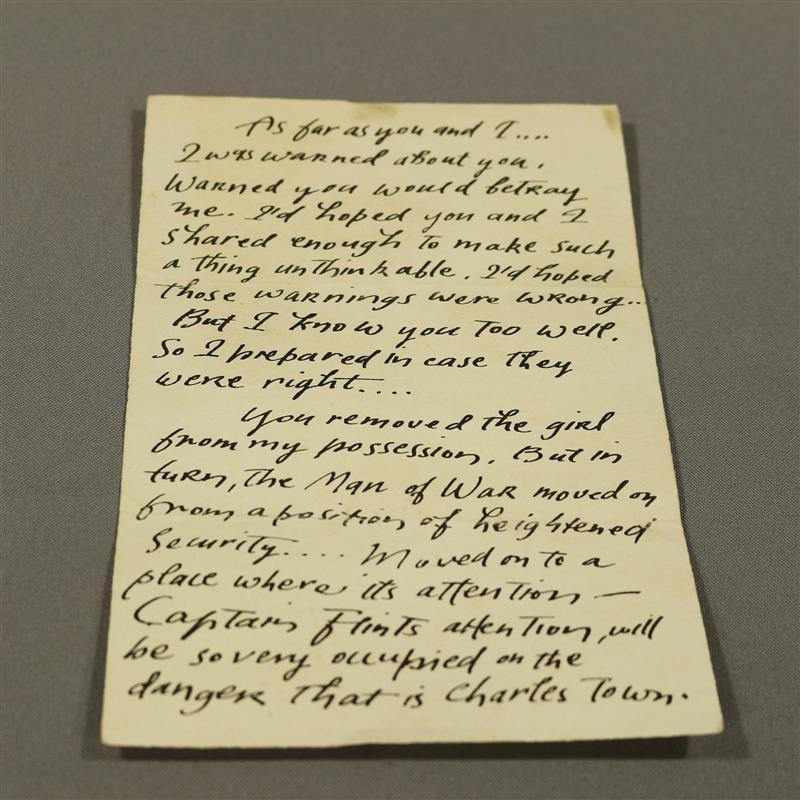 As far as you and I....
I was warned about you.
Warned you would betray
me. I'd hoped you and I
shared enough to make such
a thing unthinkable. I'd hoped
those warnings were wrong..
But I know you too well.
So I prepared in case they
were right....
You removed the girl
from my possession. But in
turn, the Man of War moved on
from a position of heightened
security.... Moved on to a
place where its attention —
Captain Flints attention, will
be so very occupied on the
danger that is Charles Town.